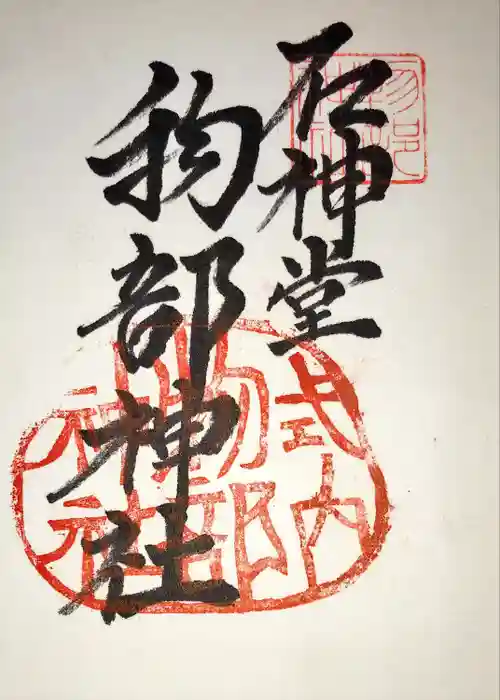 石神堂
物部神社
式内
物部
神社